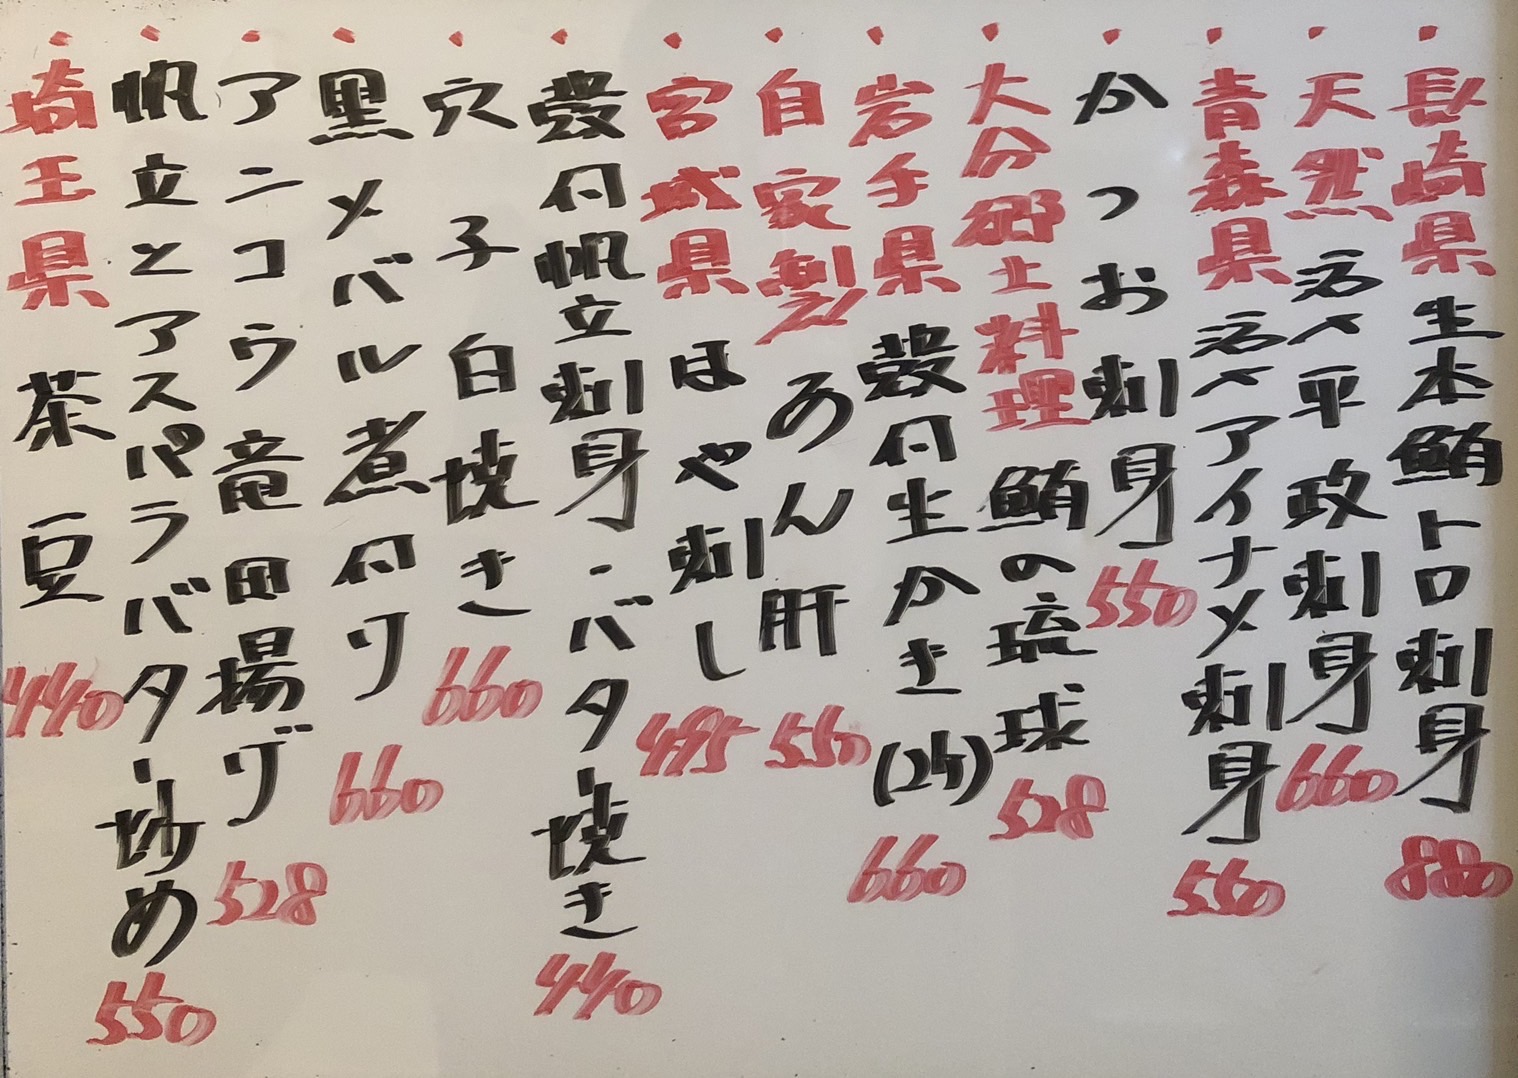 ・長崎県 生本鮪トロ刺身 880
・天然 活〆平政刺身 660
・青森県 活〆アイナメ刺身 550
・かつお刺身 550
・大分郷土料理 鮪の琉球 528
・岩手県 殻付生かき(2ケ) 660
・自家製 あん肝 550
・宮城県 ほや刺し 495
・殻付帆立刺身・バター焼き 440
・穴子白焼き 660
・黒メバル煮付け 660
・アンコウ竜田揚げ 528
・帆立とアスパラバター炒め 550
・埼玉県 茶豆 440